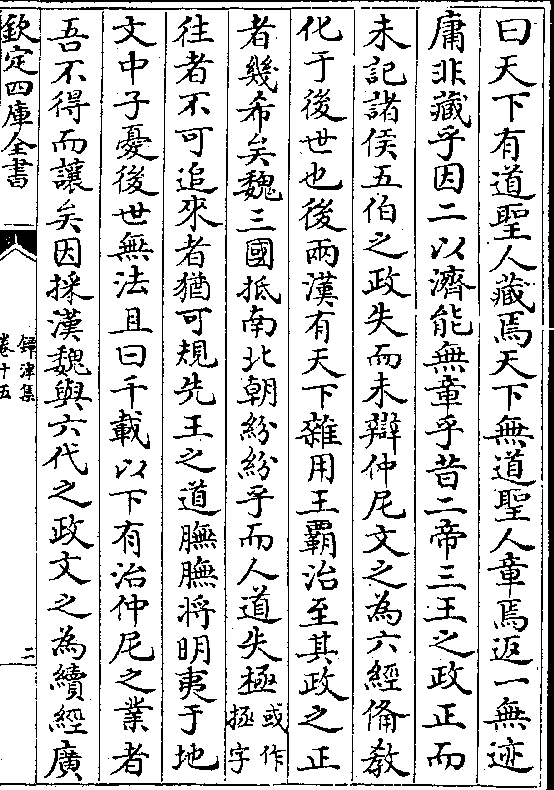 曰天下有道聖人藏焉天下無道聖人章焉返一無迹
庸非藏乎因二以濟能無章乎昔二帝三王之政正而
未記諸侯五伯之政失而未辯仲尼文之為六經備教
化于後世也後兩漢有天下雜用王霸治至其政之正
者幾希矣魏三國抵南北朝紛紛乎而人道失極或作極字
往者不可追來者猶可規先王之道膴膴將明夷于地
文中子憂後世無法且曰千載以下有治仲尼之業者
吾不得而讓矣因採漢魏與六代之政文之為續經廣
欽定四庫全書
鐔津集
卷十五
二